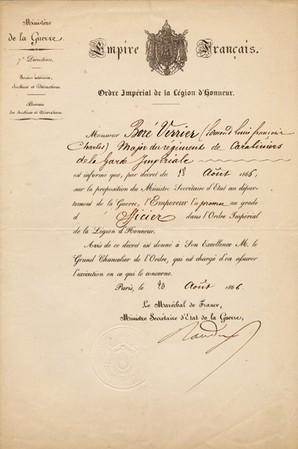 Ministère
de la Guerre.
7e Direction.
Bureau
Empire Français.
Ordre Impérial de la Légion d'Honneur.
Monsieur Boré Verrier (Ernest Louis François
Charles) Major du régiment de Carabiniers
de la Garde Impériale
est informé que, par décret du Août 1866,
sur la proposition du Ministre Secrétaire d'Etat au dépar-
tement de la Guerre, l'Empereur l'a promu au grade
d'Officier dans l'Ordre Impérial
de la Légion d'Honneur.
Avis de ce décret est donné à Son Excellence M. le
Grand Chancelier de l'Ordre, qui est chargé d'en assurer
l'exécution en ce qui le concerne.
Paris, le 20 Août 1866
Le Maréchal de France,
Ministre Secrétaire d'Etat de la Guerre,
Randon